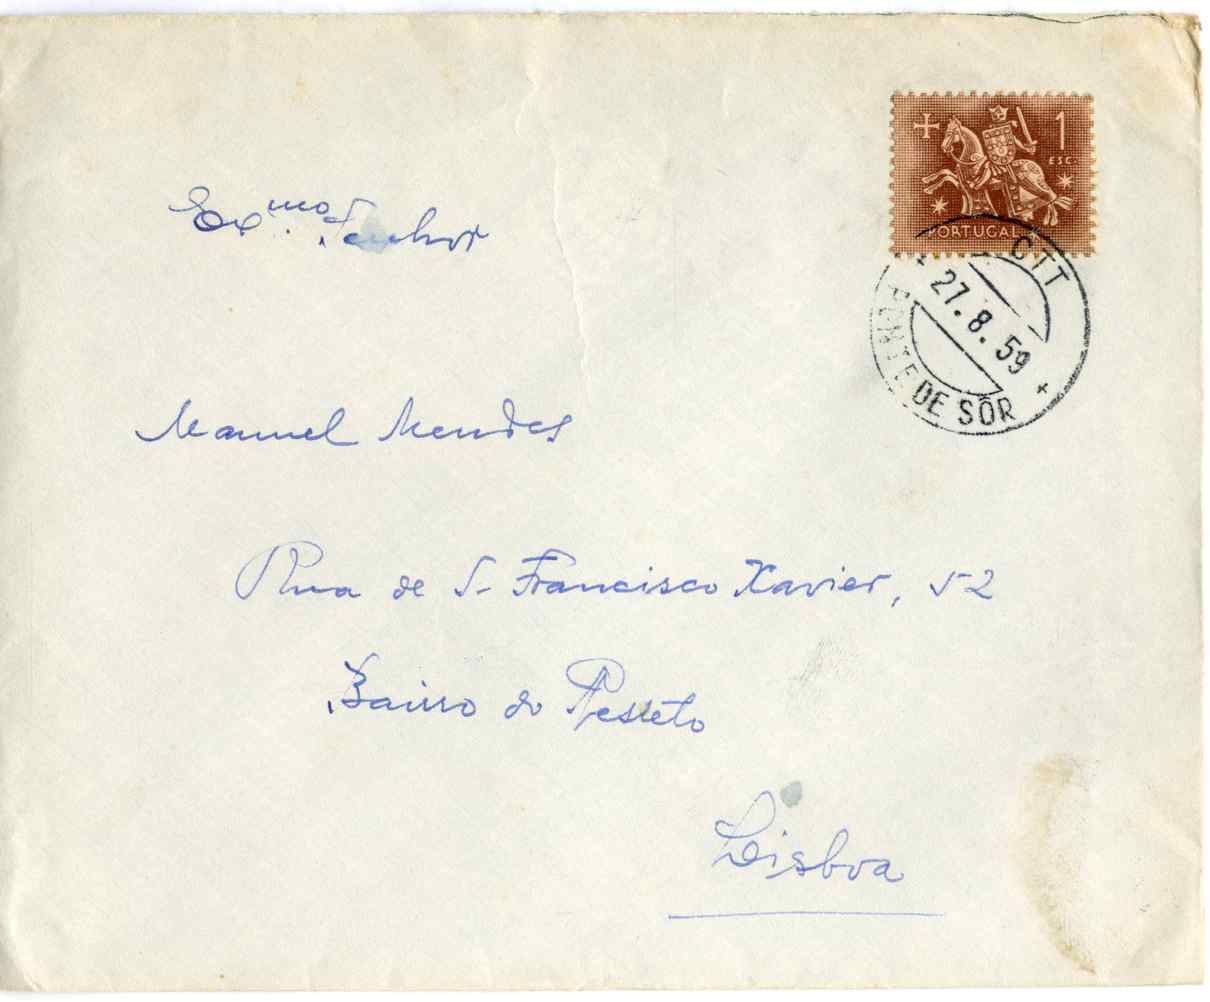 1
ESC.
PORTUGAL
CTT
27.8.59
PONTE DE SÔR
Exmo. Senhor
Manuel Mendes
Rua de S. Francisco Xavier, 52
Bairro do Resteto
Lisboa